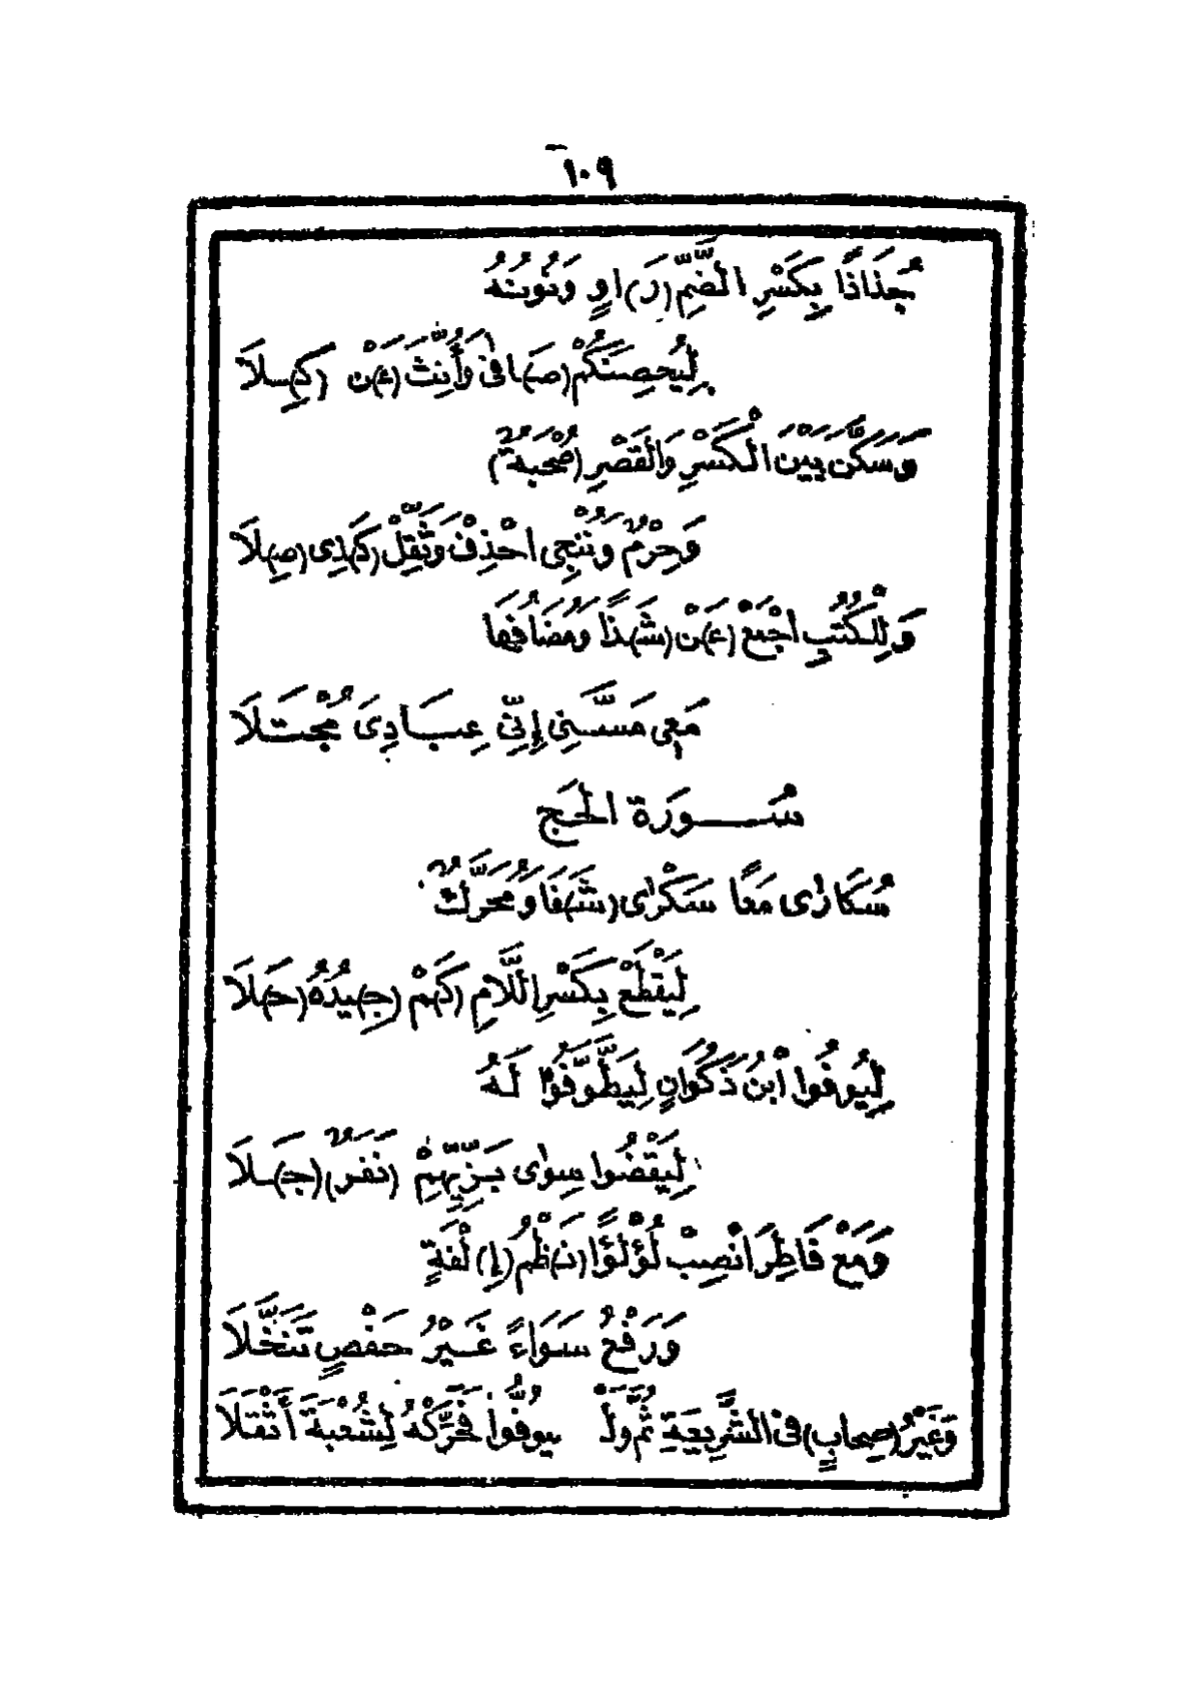 ١٠٩
جُذَاذًا بِكَسْرِ الضَّمِّ (رَ)اوٍ وَنُونُهُ
لِيُحْصِنَكُمْ (صَ)افىٰ وَأُنِّثَ (عَ)نْ (كِ)ـلَا
وَسَكَّنَ بَيْنَ الْكَسْرِ وَالْقَصْرِ (صُحْبَةٌ)
وَحِرْمٌ وَنُنْجِى احْذِفْ وَثَقِّلْ (كَ)ذِى (صِ)لَا
وَلِلْكُتُبِ اجْمَعْ (عَ)نْ (شَ)ذًا وَمُضَافُهَا
مَعِى مَسَّنِى إِنِّى عِبَادِىَ مُجْتَلَا
سُـــورَة الحَج
سُكَارٰى مَعًا سَكْرٰى (شَ)فَا وَمُحَرَّكٌ
لِيَقْطَعْ بِكَسْرِ اللَّامِ (كَ)مْ (جِ)يدُهُ (حَ)لَا
لِيُوفُوا ابْنُ ذَكْوَانٍ لِيَطَّوَّفُوا لَهُ
لِيَقْضُوا سِوٰى بَزِّيِّهِمْ (نَفَرٌ) (جَ)ـلَا
وَمَعْ فَاطِرَ انْصِبْ لُؤْلُؤًا (نَ)ظْمُ (إِ)لْفَةٍ
وَرَفْعُ سَوَاءً غَيْرُ حَفْصٍ تَنَخَّلَا
وَغَيْرُ (صِحَابٍ) فِى الشَّرِيعَةِ ثُمَّ وَلْـ يُوَفُّوا فَحَرِّكْهُ لِشُعْبَةَ أَثْقَلَا